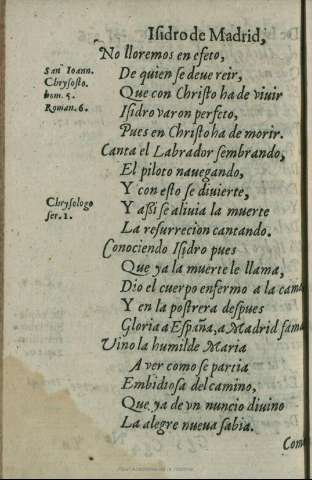 Isidro de Madrid,
No lloremos en efeto,
De quien se deve reir,
Que con Christo ha de vivir
Isidro varon perfeto,
Pues en Christo ha de morir.
Canta el Labrador sembrando,
El piloto navegando,
Y con esto se divierte,
Y assi se alivia la muerte
La resurrecion cantando.
Conociendo Isidro pues
Que ya la muerte le llama,
Dio el cuerpo enfermo a la cama
Y en la postrera despues
Gloria a España, a Madrid fama
Vino la humilde Maria
A ver como se partia
Embidiosa del camino,
Que ya de vn nuncio divino
La alegre nueva sabia.
Com
San Ioann.
Chrysosto.
hom. 5.
Roman. 6.
Chrysologo
ser. 1.